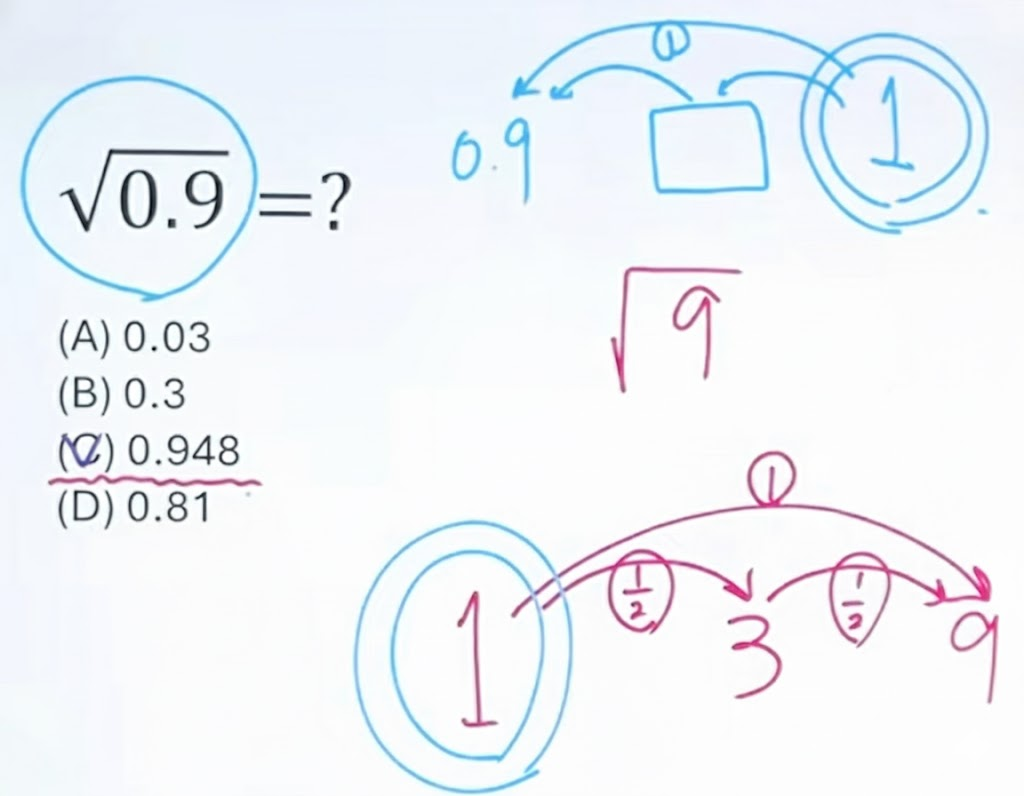 √0.9 =?
(A) 0.03
(B) 0.3
(C) 0.948
(D) 0.81
①
0.9 □ 1
√9
①
1/2 1/2
1 3 9